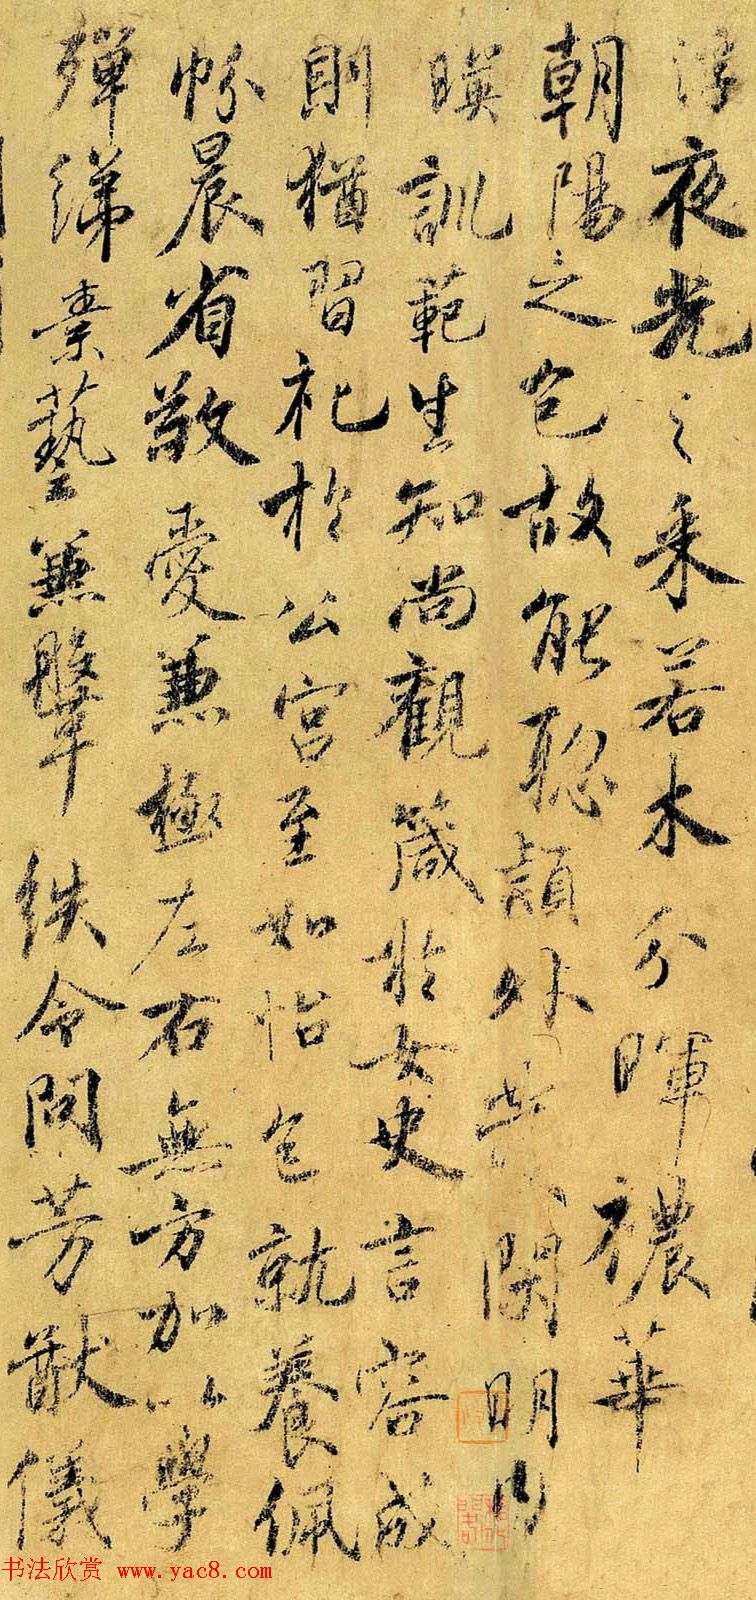 浮夜光之采若木分暉穠華
朝陽之色故能聡穎外發閑明内
暎訓範生知尚觀箴於女史言容成
則猶習礼於公宫至如怡色就養佩
帉晨省敬愛兼極左右無方加以學
殫綈素藝兼鞶紩令問芳猷儀
书法欣赏 www.yac8.com